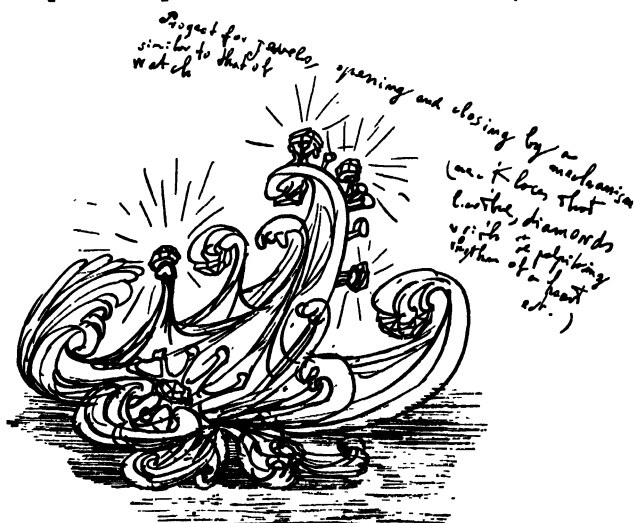 Progect for jewels, opening and closing by a mechanism
similar to that of
watch
that
diamonds
with a palpiting
rhythm of a heart
ect.)